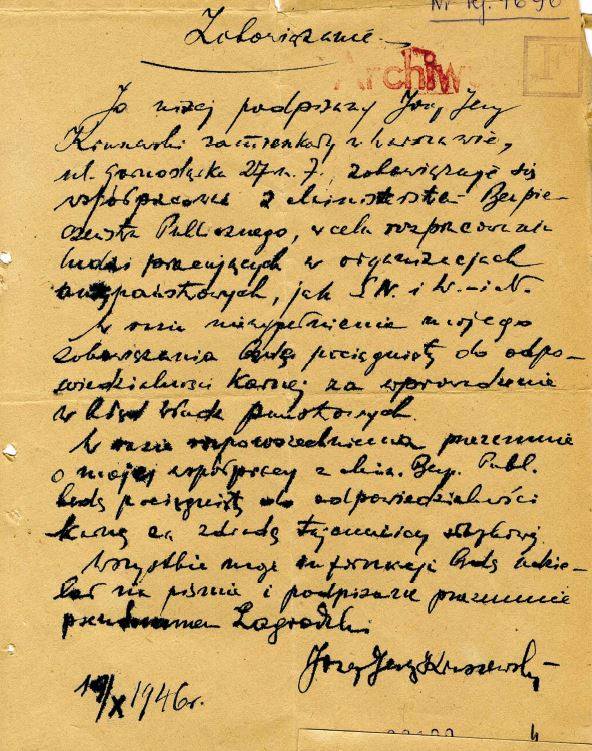 Nr Rej. 1690
Zobowiązanie
Archiw
F
Ja niżej podpisany Józef Jerzy
Kruszewski zamieszkały w Warszawie,
ul. Górnośląska 27 m. 7, zobowiązuję się
współpracować z Ministerstwem Bezpie-
czeństwa Publicznego, w celu rozpracowania
ludzi pracujących w organizacjach
antypaństwowych, jak S.N. i W.-i-N.
W razie niewypełnienia mojego
zobowiązania będę pociągnięty do odpo-
wiedzialności karnej za wprowadzenie
w błąd władz państwowych.
W razie rozpowszechnienia przezemnie
o mojej współpracy z Min. Bezp. Publ.
będę pociągnięty do odpowiedzialności
karnej za zdradę tajemnicy służbowej.
Wszystkie moje informacje będę udzie-
lał na piśmie i podpisane przezemnie
pseudonimem Zagrodzki
Józef Jerzy Kruszewski
/X 1946r.